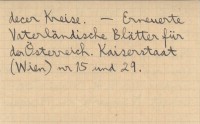 decer Kreise. — Erneuerte
Vaterländische Blätter für
den Österreich. Kaiserstaat
(Wien) nr 15 und 29.